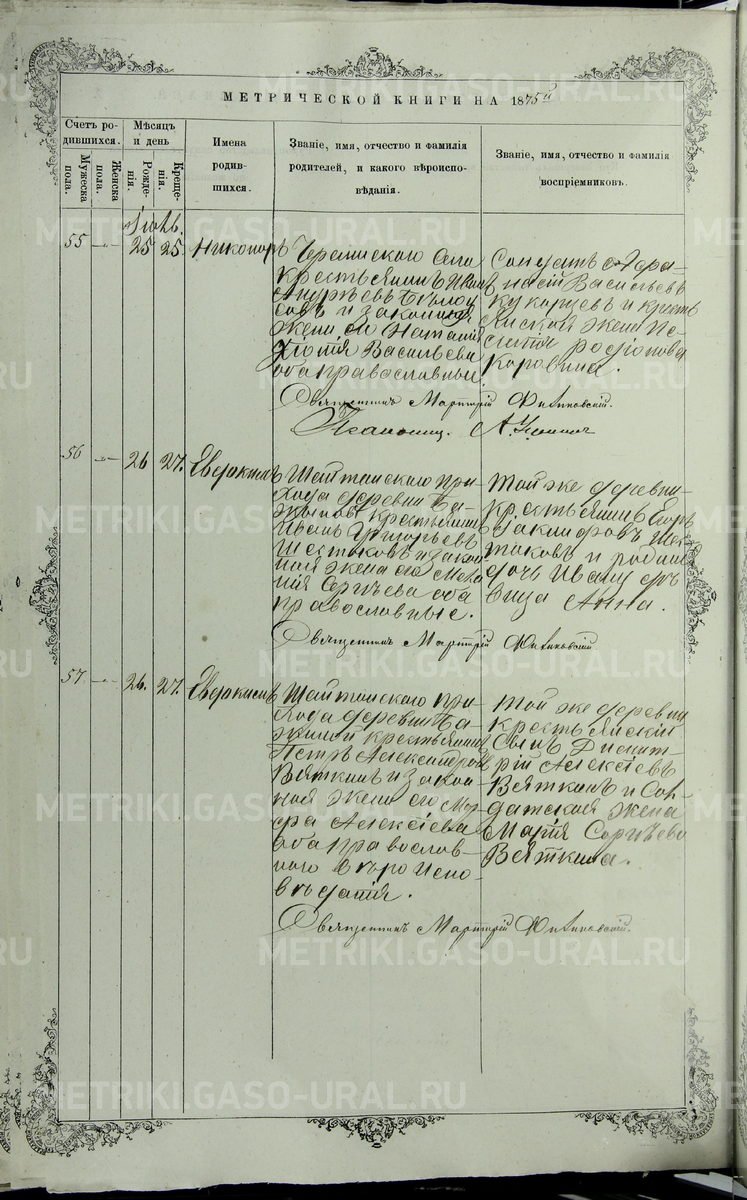 МЕТРИЧЕСКОЙ КНИГИ НА 1875й
Счетъ ро-
дившихся.
Мужеска
пола.
Женска
пола.
Мѣсяцъ
и день
Рожде-
нія.
Креще-
нія.
Имена
родив-
шихся.
Званіе, имя, отчество и фамилія
родителей, и какого вѣроиспо-
вѣданія.
Званіе, имя, отчество и фамилія
воспріемниковъ.
55
25
25
Никаноръ
села
крестьянинъ Иванъ
Андрѣевъ
совъ и законная
жена его
Васильева
оба православные
Солдатъ
Васильевъ
и кресть
янская жена Пе
лагія Родіонова
Коровина.
Священникъ Мартирій
56
26
27.
Евдокимъ
Шайтанского при-
хода деревни
крестьянинъ
Иванъ Григорьевъ
Шестаковъ и закон
ная жена его Мела
нія Сергѣева оба
православные.
Той же деревни
крестьянинъ Егоръ
Шес
таковъ и
дочь Ивана дѣ
вица Анна.
Священникъ Мартирій
57
26.
27.
Евдокимъ
Шайтанского при-
хода деревни
крестьянинъ
Петръ Александровъ
Вяткинъ и закон
ная жена его Мар
фа Алексіева
оба православ-
ного вѣроиспо-
вѣданія.
Той же деревни
крестьянскій
сынъ Димит-
рій Алексіевъ
Вяткинъ и Сол
датская жена
Марія Сергѣева
Вяткина.
Священникъ Мартирій
METRIKI.GASO-URAL.RU